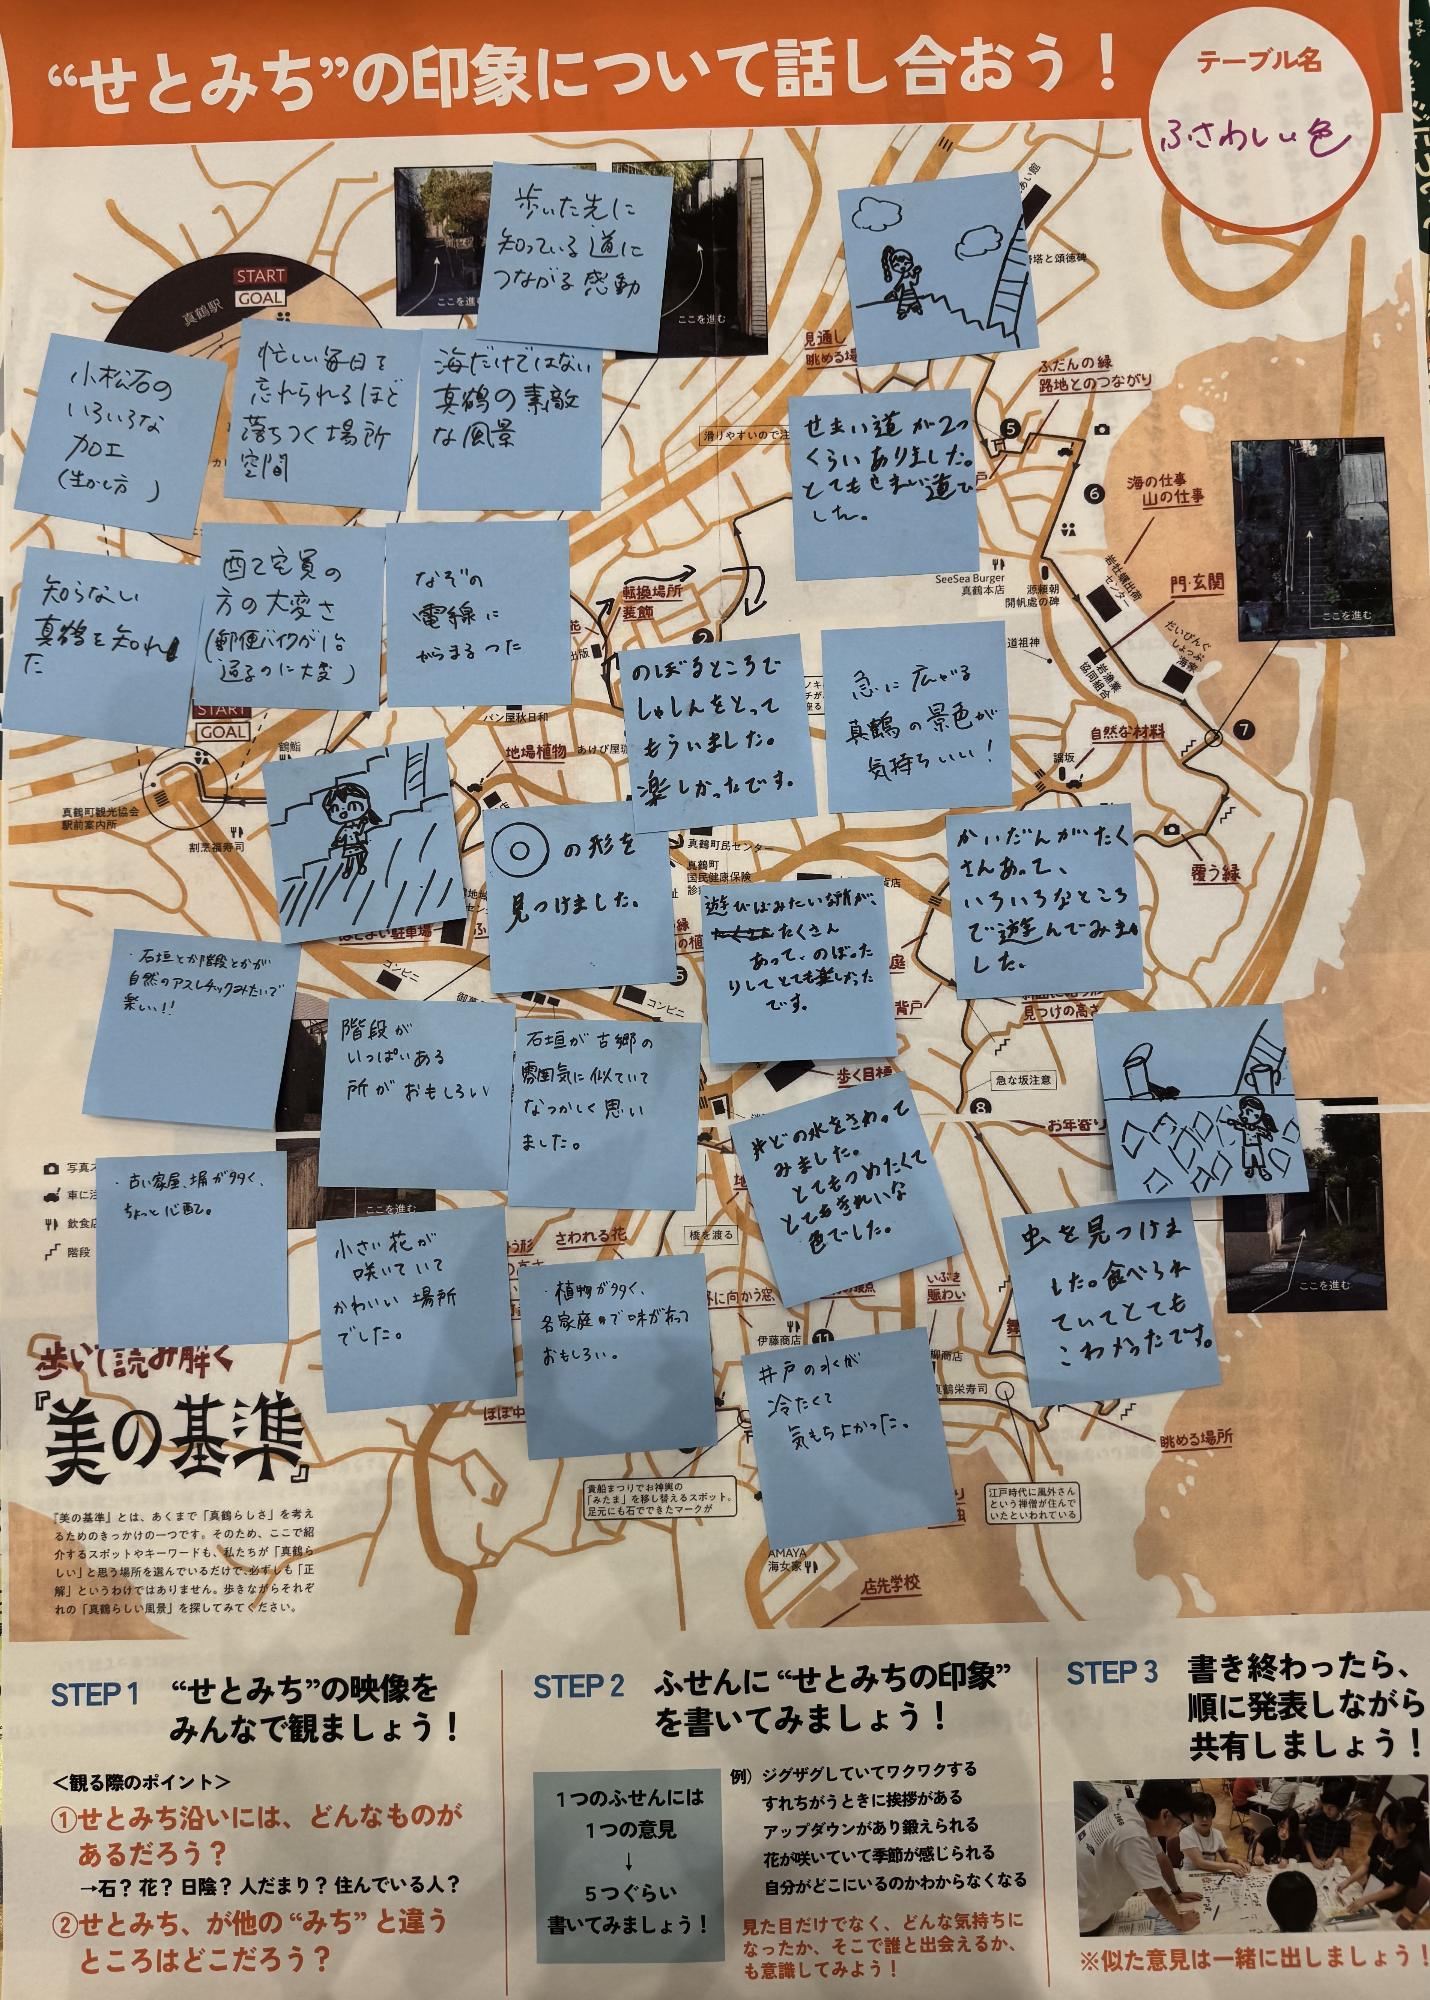 “せとみち”の印象について話し合おう！
テーブル名
ふさわしい色
歩いた先に
知っている道に
つながる感動
ここを進む
START
GOAL
真鶴駅
小松石の
いろいろな
加工
(生かし方)
忙しい毎日を
忘れられるほど
落ちつく場所
空間
海だけではない
真鶴の素敵
な風景
見通し
眺める場
ふだんの緑
路地とのつながり
せまい道が2つ
くらいありました。
とてもせまい道で
した。
5
6
海の仕事
山の仕事
SeeSea Burger
真鶴本店
源頼朝
開帆處の碑
岩漁業
協同組合
だいびんぐ
しょっぷ
海家
門・玄関
ここを進む
道祖神
知らない
真鶴を知れ
た
配て宅員の
方の大変さ
(郵便バイクが1台
通るのに大変)
なぞの
電線に
からまるつた
転換場所
装飾
2
のぼるところで
しゃしんをとって
もらいました。
楽しかったです。
急に広がる
真鶴の景色が
気持ちいい！
7
自然な材料
START
GOAL
鶴鮨
パン屋秋日和
地場植物
真鶴町観光協会
駅前案内所
割烹福寿司
◎の形を
見つけました。
真鶴町民センター
真鶴町
国民健康保険
かいだんがたく
さんあって、
いろいろなところ
で遊んでみま
した。
覆う緑
ほどよい駐車場
コンビニ
遊びばみたい場所が、
たくさん
あって、のぼった
りしてとても楽しかった
です。
背戸
見つけの高さ
・石垣とか階段とかが
自然のアスレチックみたいで
楽しい!!
階段が
いっぱいある
所がおもしろい
石垣が古郷の
雰囲気に似ていて
なつかしく思い
ました。
コンビニ
歩く目標
急な坂注意
8
お年寄り
井どの水をさわって
みました。
とてもつめたくて
とてもきれいな
色でした。
・古い家屋、塀が多く、
ちょっと心配。
ここを進む
小さい花が
咲いていて
かわいい場所
でした。
さわれる花
橋を渡る
・植物が多く、
各家庭ので味があって
おもしろい。
いぶき
賑わい
伊藤商店
11
虫を見つけま
した。食べられ
ていてとても
こわかったです。
ここを進む
真鶴栄寿司
井戸の水が
冷たくて
気もちよかった。
眺める場所
歩いて読み解く
『美の基準』
『美の基準』とは、あくまで「真鶴らしさ」を考え
るためのきっかけの一つです。そのため、ここで紹
介するスポットやキーワードも、私たちが「真鶴ら
しい」と思う場所を選んでいるだけで、必ずしも「正
解」というわけではありません。歩きながらそれぞ
れの「真鶴らしい風景」を探してみてください。
貴船まつりでお神輿の
「みたま」を移し替えるスポット。
足元にも石でできたマークが
江戸時代に風外さん
という禅僧が住んで
いたといわれている
AMAYA
海女家
店先学校
STEP 1 “せとみち”の映像を
みんなで観ましょう！
＜観る際のポイント＞
①せとみち沿いには、どんなものが
あるだろう？
→石？花？日陰？人だまり？住んでいる人？
②せとみち、が他の“みち”と違う
ところはどこだろう？
STEP 2 ふせんに“せとみちの印象”
を書いてみましょう！
1つのふせんには
1つの意見
↓
5つぐらい
書いてみましょう！
例）ジグザグしていてワクワクする
すれちがうときに挨拶がある
アップダウンがあり鍛えられる
花が咲いていて季節が感じられる
自分がどこにいるのかわからなくなる
見た目だけでなく、どんな気持ちに
なったか、そこで誰と出会えるか、
も意識してみよう！
STEP 3 書き終わったら、
順に発表しながら
共有しましょう！
※似た意見は一緒に出しましょう！